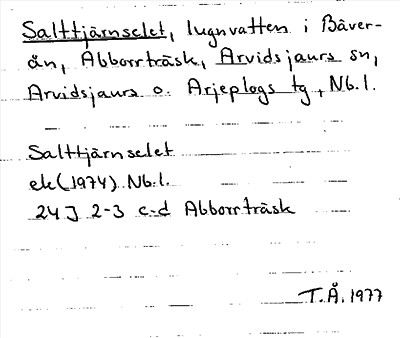 Salttjärnselet, lugnvatten i Bäver-
ån, Abborrträsk, Arvidsjaurs sn,
Arvidsjaurs o. Arjeplogs tg, Nb.l.
Salttjärnselet
ek(1974) Nb.l.
24J 2-3 c-d Abborrträsk
T.Å. 1977